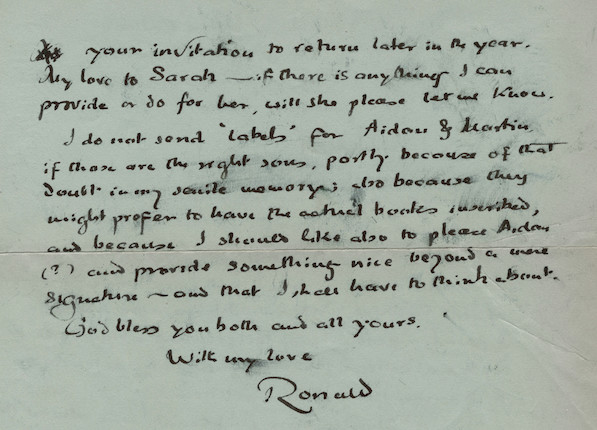 your invitation to return later in the year.
My love to Sarah — if there is anything I can
provide or do for her, will she please let me know.
I do not send 'labels' for Aidan & Martin
if those are the right sons, partly because of that
doubt in my senile memory; also because they
might prefer to have the actual books inscribed,
and because I should like also to please Aidan
(?) and provide something nice beyond a mere
signature — and that I shall have to think about.
God bless you both and all yours.
With my love
Ronald